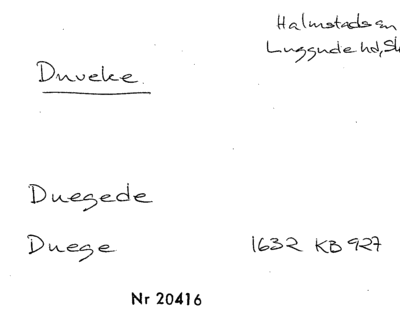 Halmstads sn
Luggude hd, Sk
Duveke.
Duegede
Duege 1632 KB 927
Nr 20416